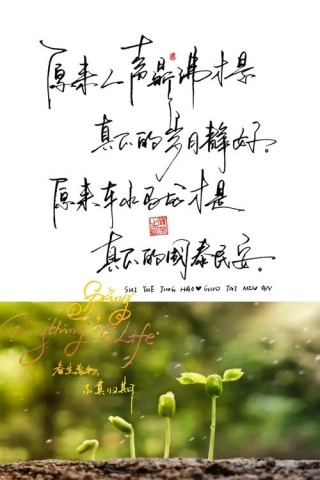 原来人声鼎沸才是
真正的岁月静好。
原来车水马龙才是
真正的国泰民安。
SUI YUE JING HAO♥GUO TAI MIN AN
Bring
Everything To Life
春生万物,
归期